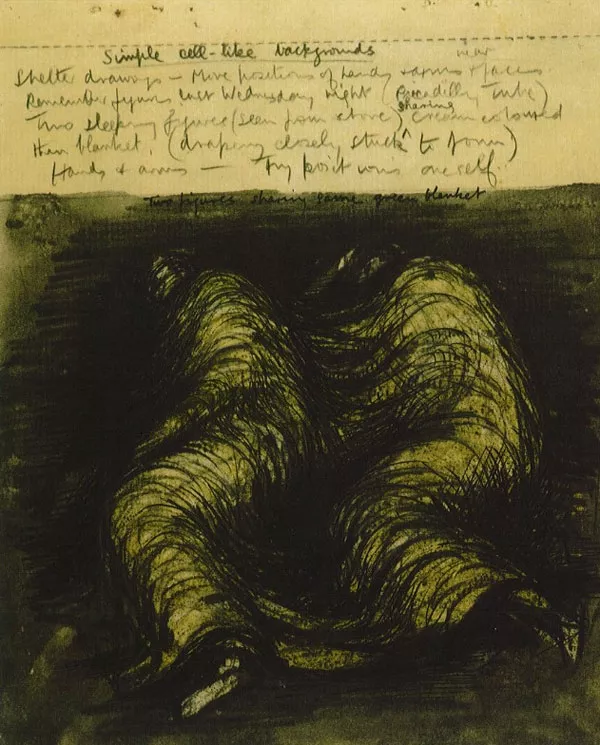 Simple cell-like backgrounds
Shelter drawings – More positions of hands & arms & faces near
Remember figures last Wednesday night (Piccadilly Tube)
Two sleeping figures (seen from above) sharing cream coloured
thin blanket. (drapery closely stuck to form)
Hands & arms — Try positions oneself.
Two figures sharing same green blanket